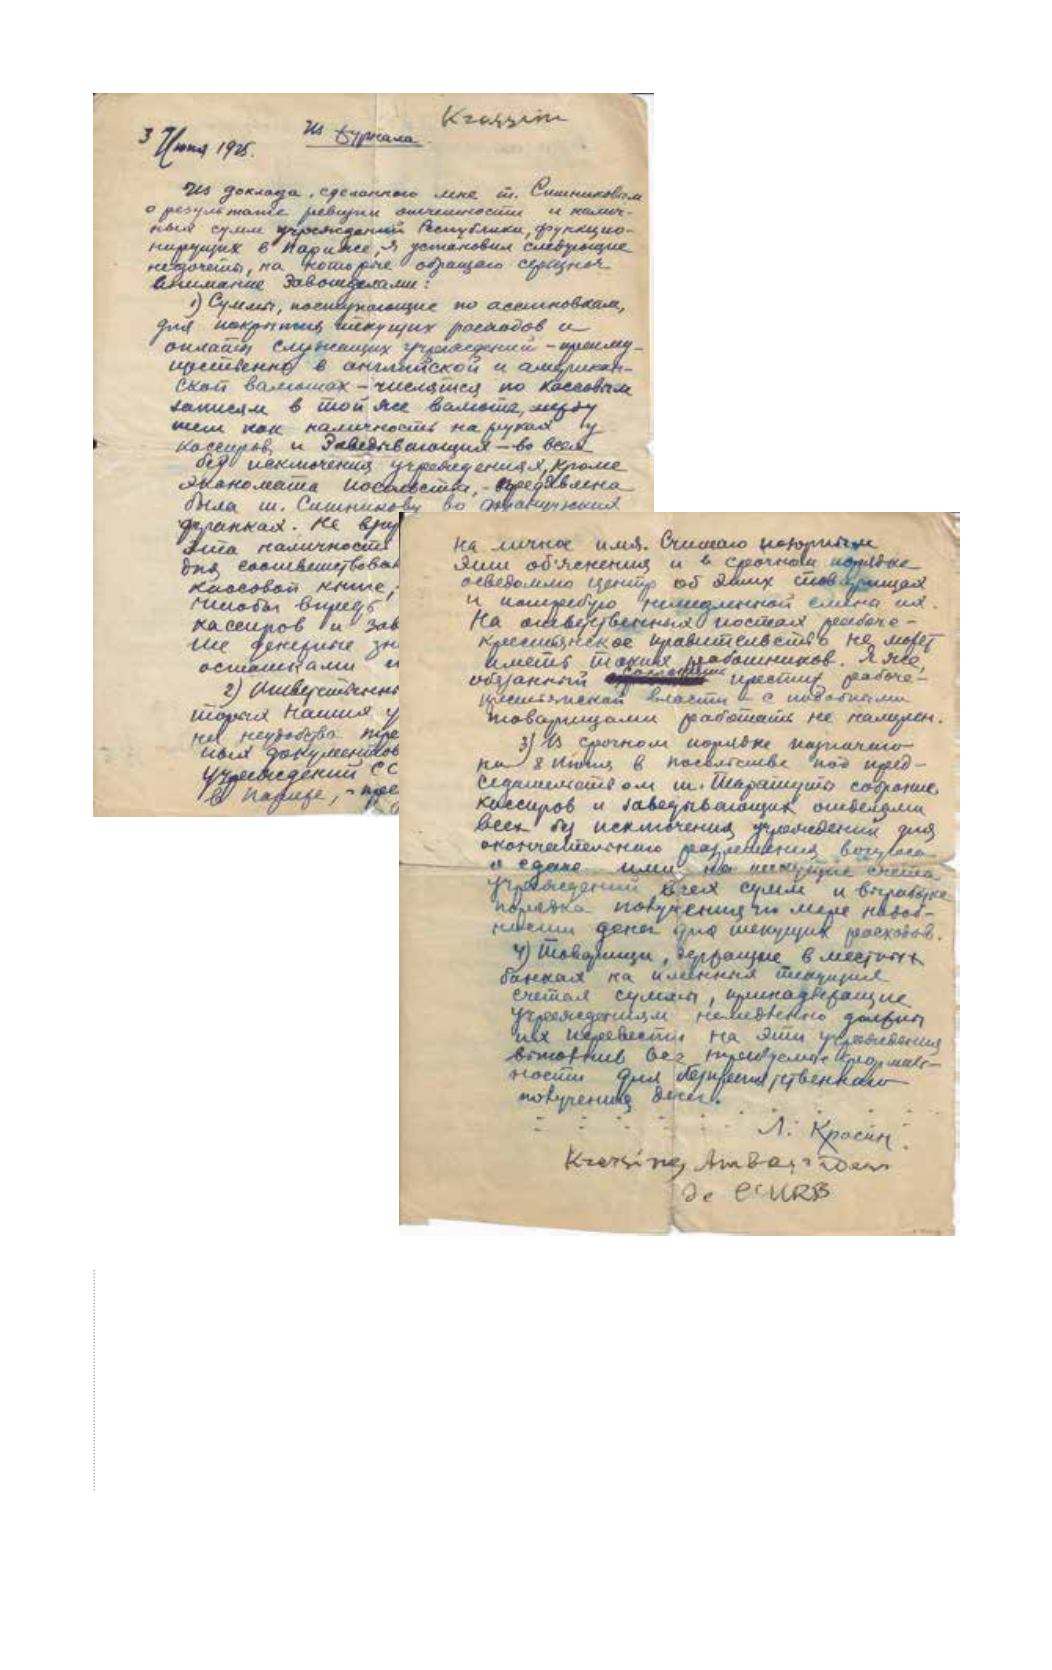 Krassin
3 Июня 1925.
Из журнала.
Из доклада, сделанного мне т. Ситниковым
о результате ревизии отчетности и налич-
ных сумм учреждений Республики, функцио-
нирущих в Париже, я установил следующие
недочеты, на которые обращаю серьезное
внимание Завотделами:
1) Суммы, поступающие по ассигновкам,
для покрытия текущих расходов и
оплаты служащих учреждений - преиму-
щественно в английской и американ-
ской валютах - числятся по кассовым
записям в той же валюте, между
тем как наличность на руках у
кассиров и Заведывающих - во всех
без исключения учреждениях, кроме
Экономата посольства, - предявлена
была т. Ситникову во французских
франках. Не
эта наличность
для соответствова
кассовой книге,
чтобы впредь
кассиров и зав
ие денежные зн
остатками
2)
торых наших у
ных документов
учреждений СС
в Париже, - пре
на личное имя. Считаю
эти об'яснения и в срочном порядке
осведомлю центр об этих товарищах
и потребую немедленной смены их.
На ответственных постах рабоче-
крестьянское правительство не может
иметь таких работников. Я же,
обязанный престиж рабоче-
крестьянской власти - с подобными
товарищами работать не намерен.
3) В срочном порядке назначаю
на 8 Июня в посольстве под пред-
седательством т. Таратуты собрание
кассиров и заведывающих отделами
всех без исключения учреждений для
окончательного разрешения вопроса
о сдаче ими на текущие счета
учреждений всех сумм и выработке
порядка получения по мере надоб-
ности денег для текущих расходов.
4) Товарищи, держащие в местных
банках на именных текущих
счетах суммы, принадлежащие
учреждениям немедленно должны
их перевести на эти учреждения
выполнив все требуемые формаль-
ности для беспрепятственного
получения денег.
Л. Красин.
Krassine, Ambassadeur
de l'URSS